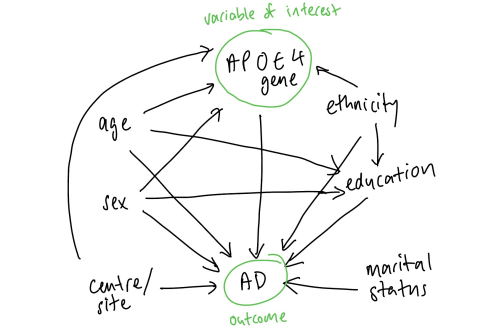 variable of interest
APOE4
gene
ethnicity
age
education
sex
centre/
site
AD
marital
status
outcome